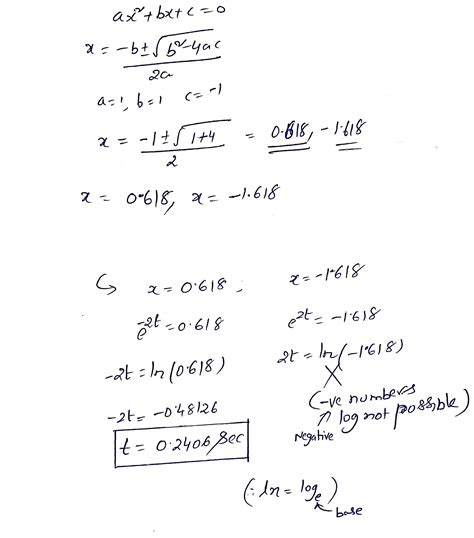 ax²+bx+c=0
x = -b±√b²-4ac / 2a
a=1, b=1 c=-1
x = -1±√1+4 / 2 = 0.618, -1.618
x = 0.618, x = -1.618
↳ x = 0.618 ; x = -1.618
e^-2t = 0.618 e^2t = -1.618
-2t = ln(0.618) 2t = ln(-1.618)
-2t = -0.48126 (-ve numbers log not possible)
Negative
t = 0.2406 sec
(∵ ln = log_e)
base